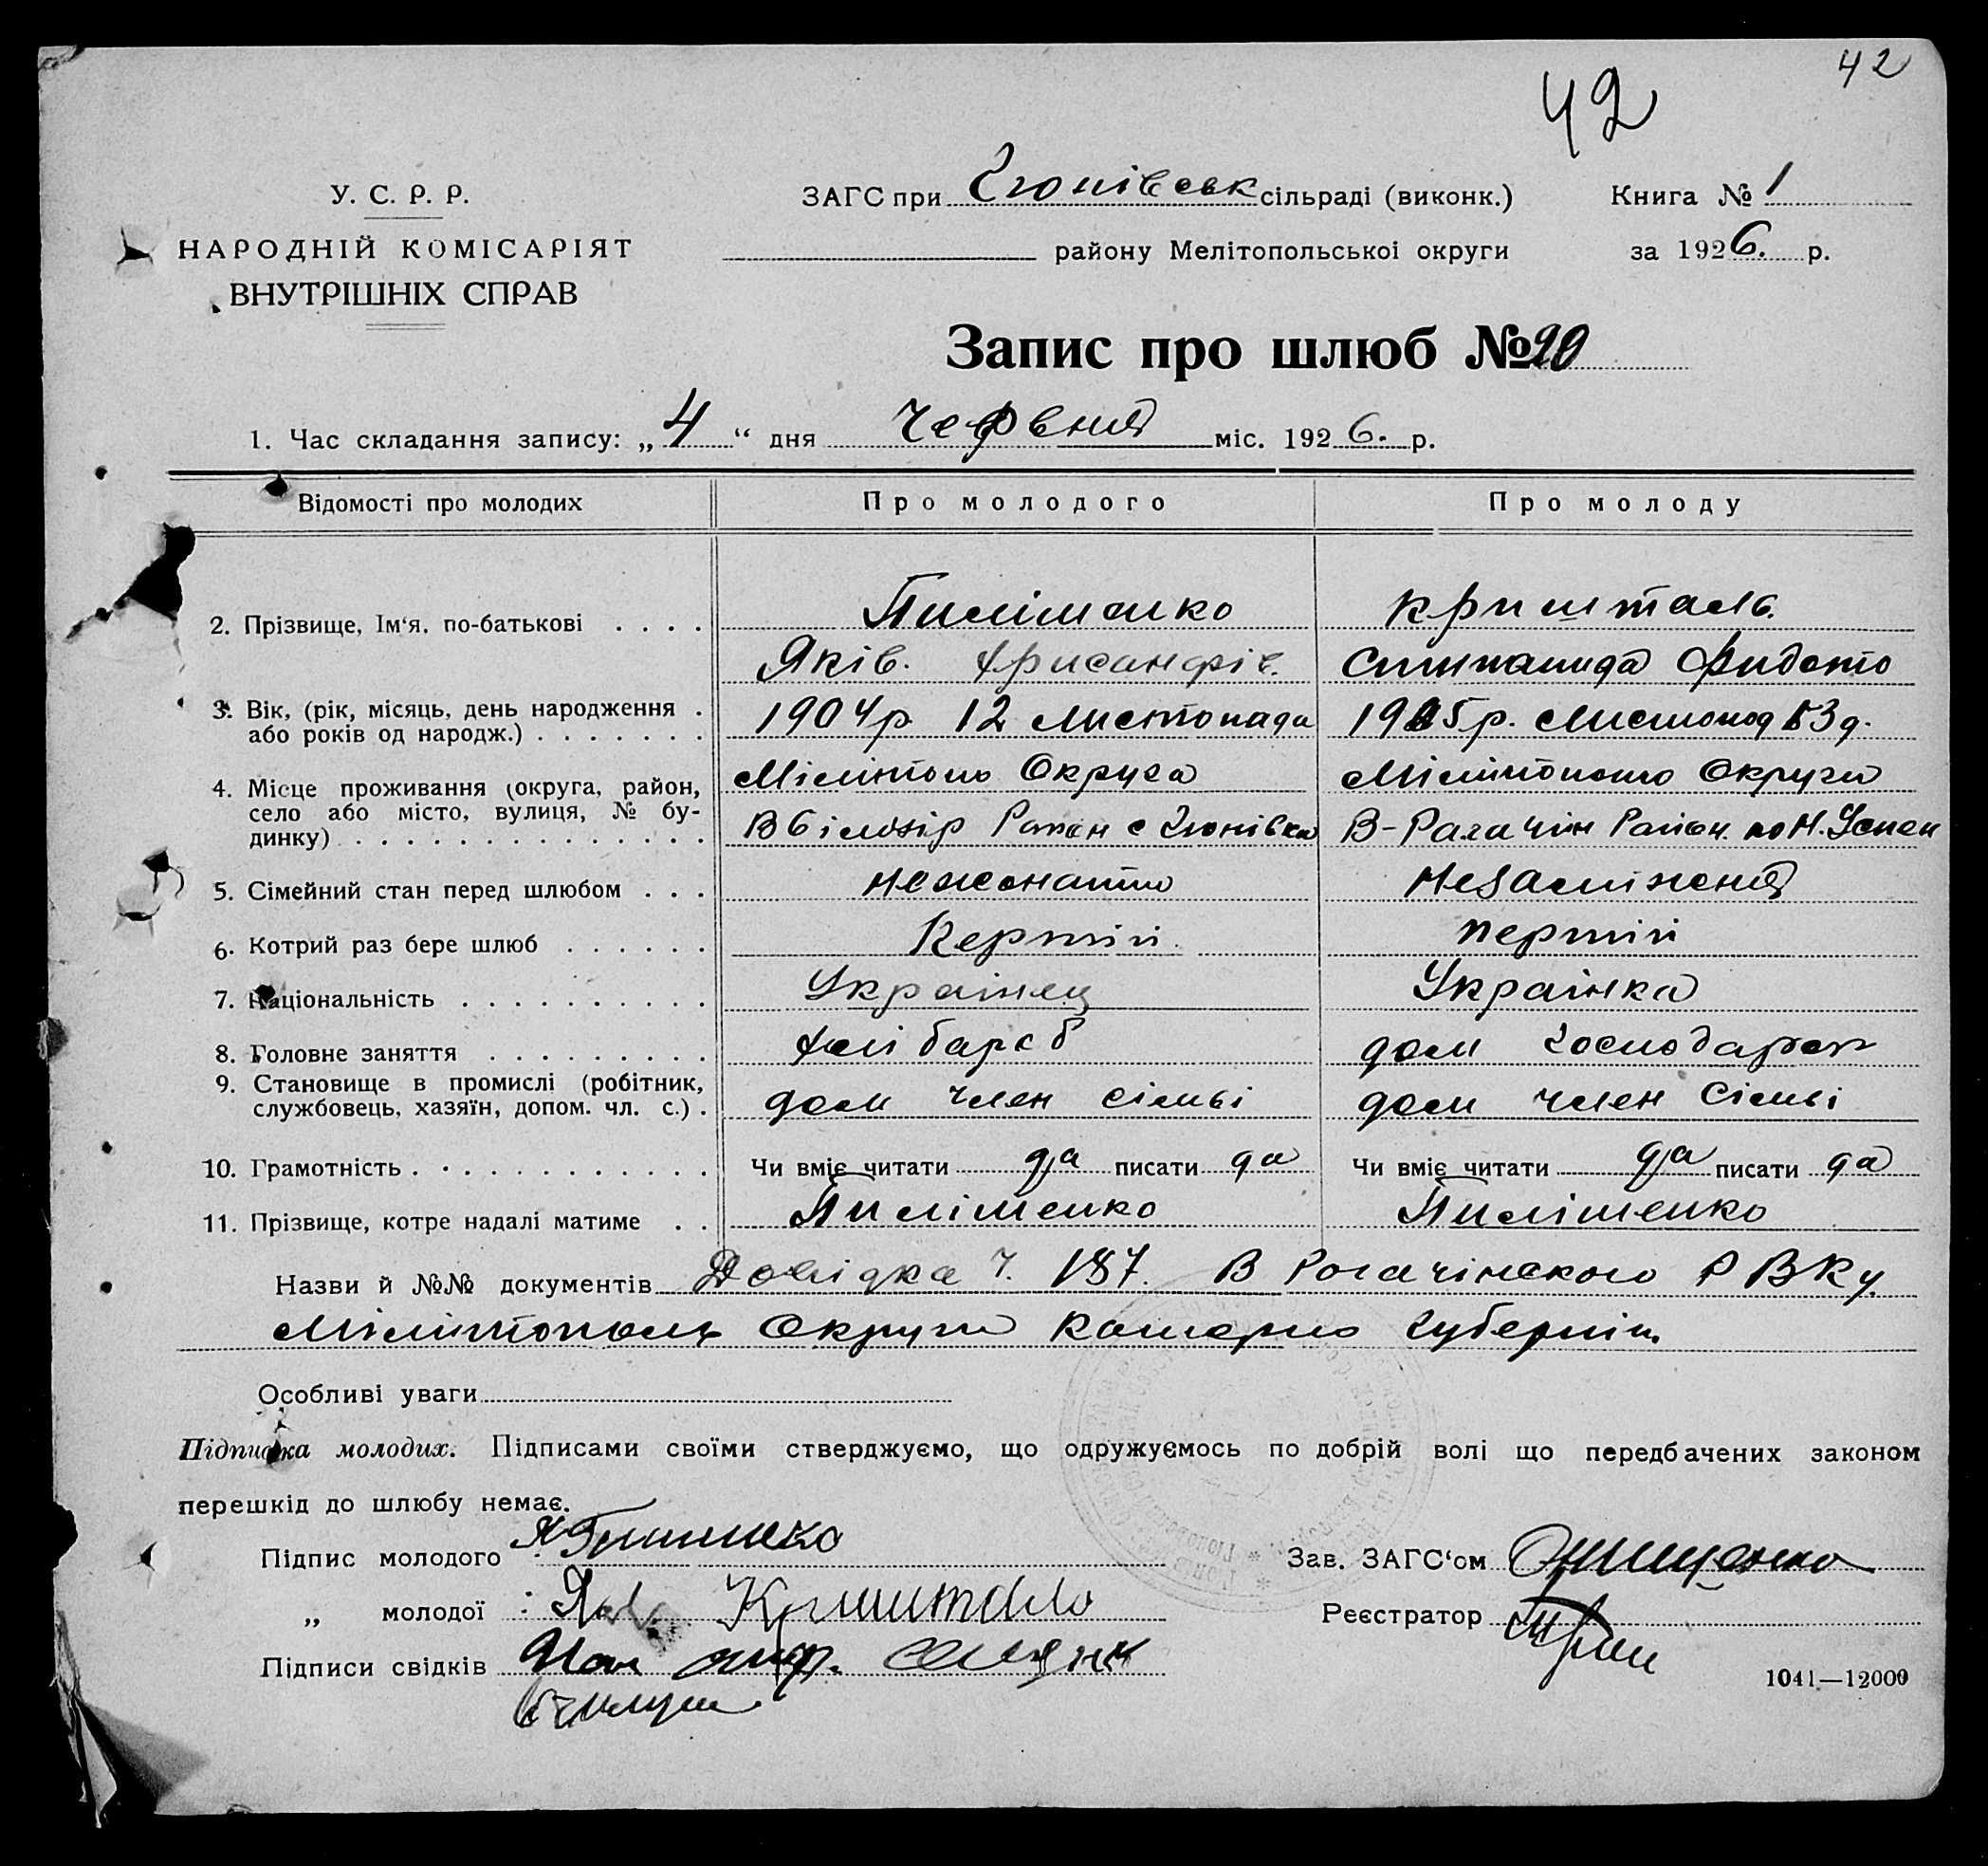 42
42
У. С. Р. Р.
НАРОДНІЙ КОМІСАРІЯТ
ВНУТРІШНІХ СПРАВ
ЗАГС при сільраді (виконк.) Книга № 1
району Мелітопольської округи за 1926. р.
Запис про шлюб № 20
1. Час складання запису: „4“ дня Червня міс. 1926. р.
Відомості про молодих Про молодого Про молоду
2. Прізвище, Ім‘я, по-батькові . . . . Пилішенко Кришталь.
Яків. Хрисанфів. Федото
3. Вік, (рік, місяць, день народження . або років од народж.) . . . . . . . 1904р 12 Листопада 1905р. Листопад 3 д.
4. Місце проживання (округа, район, Округа Округи
село або місто, вулиця, № бу-
динку) . . . . . . . . . . . . . . . Район с В-Рагачин Район. Успен
5. Сімейний стан перед шлюбом . . . нежонатий Незаміжня
6. Котрий раз бере шлюб . . . . . . Перший первий
7. Національність . . . . . . . . . . Українец Українка
8. Головне заняття . . . . . . . . . Хлібароб дом господарст
9. Становище в промислі (робітник,
службовець, хазяїн, допом. чл. с.) . дом член сімьї дом член сімьї
10. Грамотність . . . . . . . . . . . . Чи вміє читати да писати да Чи вміє читати да писати да
11. Прізвище, котре надалі матиме . . Пилішенко Пилішенко
Назви й №№ документів Довідка Ч. 187. В Рогачінского РВКу.
Мілітополь Округи Катерно губернії.
Особливі уваги
Підписка молодих. Підписами своїми стверджуємо, що одружуємось по добрій волі що передбачених законом
перешкід до шлюбу немає.
Підпис молодого
Зав. ЗАГС‘ом
„ молодої Кришталь
Реєстратор
Підписи свідків
1041—12000